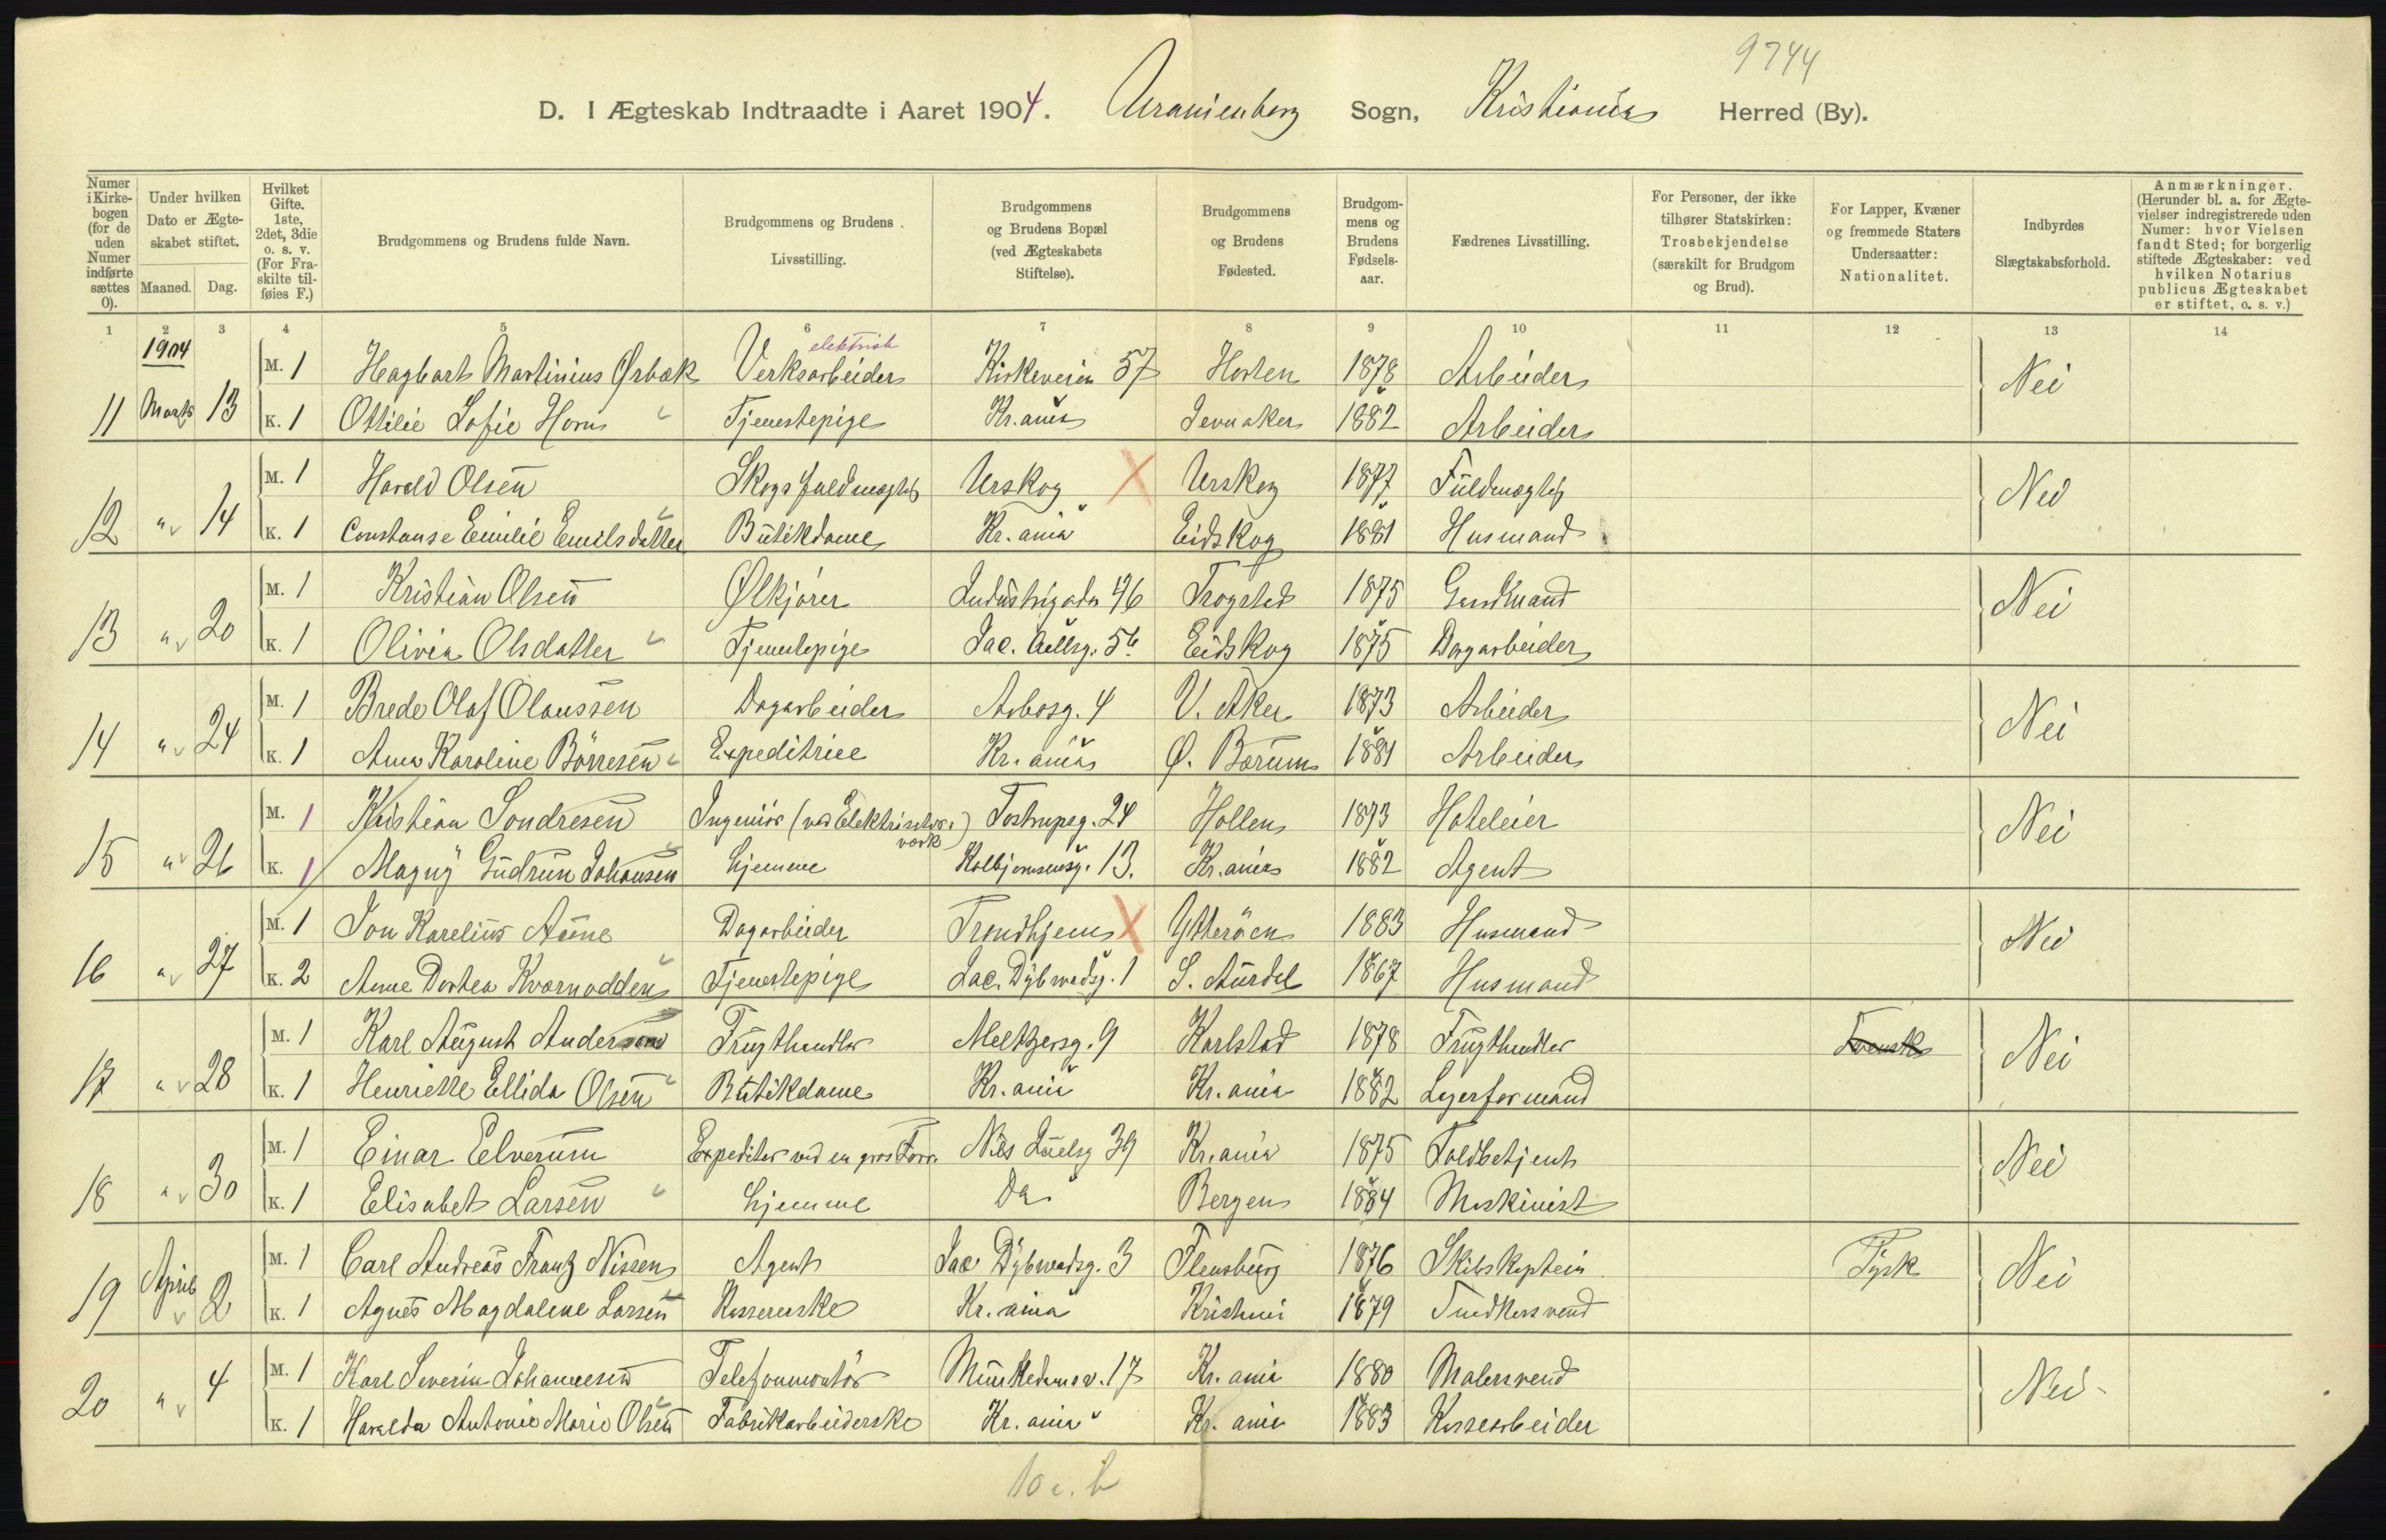 9744
D. I Ægteskab Indtraadte i Aaret 1904. Uranienborg Sogn, Kristiania Herred (By).
Numer i Kirkebogen (for de uden Numer indførte sættes 0).
Under hvilken Dato er Ægteskabet stiftet.
Maaned. Dag.
Hvilket Gifte. 1ste, 2det, 3die o. s. v. (For Fraskilte tilføies F.)
Brudgommens og Brudens fulde Navn.
Brudgommens og Brudens Livsstilling.
Brudgommens og Brudens Bopæl (ved Ægteskabets Stiftelse).
Brudgommens og Brudens Fødested.
Brudgommens og Brudens Fødselsaar.
Fædrenes Livsstilling.
For Personer, der ikke tilhører Statskirken: Trosbekjendelse (særskilt for Brudgom og Brud).
For Lapper, Kvæner og fremmede Staters Undersaatter: Nationalitet.
Indbyrdes Slægtskabsforhold.
Anmærkninger. (Herunder bl. a. for Ægtevielser indregistrerede uden Numer: hvor Vielsen fandt Sted; for borgerlig stiftede Ægteskaber: ved hvilken Notarius publicus Ægteskabet er stiftet, o. s. v.)
1 2 3 4 5 6 7 8 9 10 11 12 13 14
1904
elektrisk
M. 1 Hagbart Martinius Ørbæk Verksarbeider Kirkeveien 57 Horten 1878 Arbeider Nei
11 Marts 13 K. 1 Ottilie Sofie Horn Tjenestepige Kr.ania Jevnaker 1882 Arbeider
M. 1 Harald Olsen Skogsfuldmægtig Urskog X Urskog 1877 Fuldmægtig Nei
12 " 14 K. 1 Constanse Emilie Emilsdatter Butikdame Kr.ania Eidskog 1881 Husmand
M. 1 Kristian Olsen Ølkjører Industrigaden 46 Trøgstad 1875 Gaardmand Nei
13 " 20 K. 1 Olivia Olsdatter Tjenestepige Jac. Aallsg. 56 Eidskog 1875 Dagarbeider
M. 1 Brede Olaf Olaussen Dagarbeider Arbosg. 4 V. Aker 1873 Arbeider Nei
14 " 24 K. 1 Anna Karoline Börresen Expeditrice Kr.ania Ø. Bærum 1881 Arbeider
M. 1 Kristian Sondresen Ingeniör (ved Elektricitets- Tostrupsg. 24 Hollen 1873 Hoteleier Nei
værk)
15 " 26 K. 1 Magny Gudrun Johansen hjemme Kolbjørnsensg. 13. Kr.ania 1882 Agent
M. 1 Jon Karelius Aune Dagarbeider Trondhjem X Ytterøen 1883 Husmand Nei
16 " 27 K. 2 Anne Dorthea Kvarnodden Tjenestepige Jac. Dybwadsg. 1 S. Aurdal 1867 Husmand
M. 1 Karl August Anderson Frugthandler Meltzersg. 9 Karlstad 1878 Frugthandler Svensk Nei
17 " 28 K. 1 Henriette Ellida Olsen Butikdame Kr.ania Kr.ania 1882 Lagerformand
M. 1 Einar Elverum Expeditør ved en gros Forr. Niels Juelsg 39 Kr.ania 1875 Toldbetjent Nei
18 " 30 K. 1 Elisabet Larsen hjemme Do Bergen 1884 Maskinist
M. 1 Carl Andreas Frantz Nissen Agent Jac Dybwadsg. 3 Flensburg 1876 Skibskaptein Tysk Nei
19 April 2 K. 1 Agnes Magdalene Larsen Kassererske Kr.ania Kristiania 1879 Snedkersvend
M. 1 Karl Severin Johannesen Telefonmontör Munkedamsv. 17 Kr.ania 1880 Malersvend Nei
20 " 4 K. 1 Haralda Antonie Marie Olsen Fabrikarbeiderske Kr.ania Kr.ania 1883 Kassearbeider
10 i. b